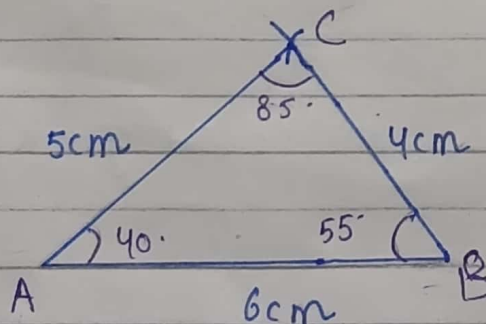 C
85°
5cm
4cm
40°
55°
A
B
6cm